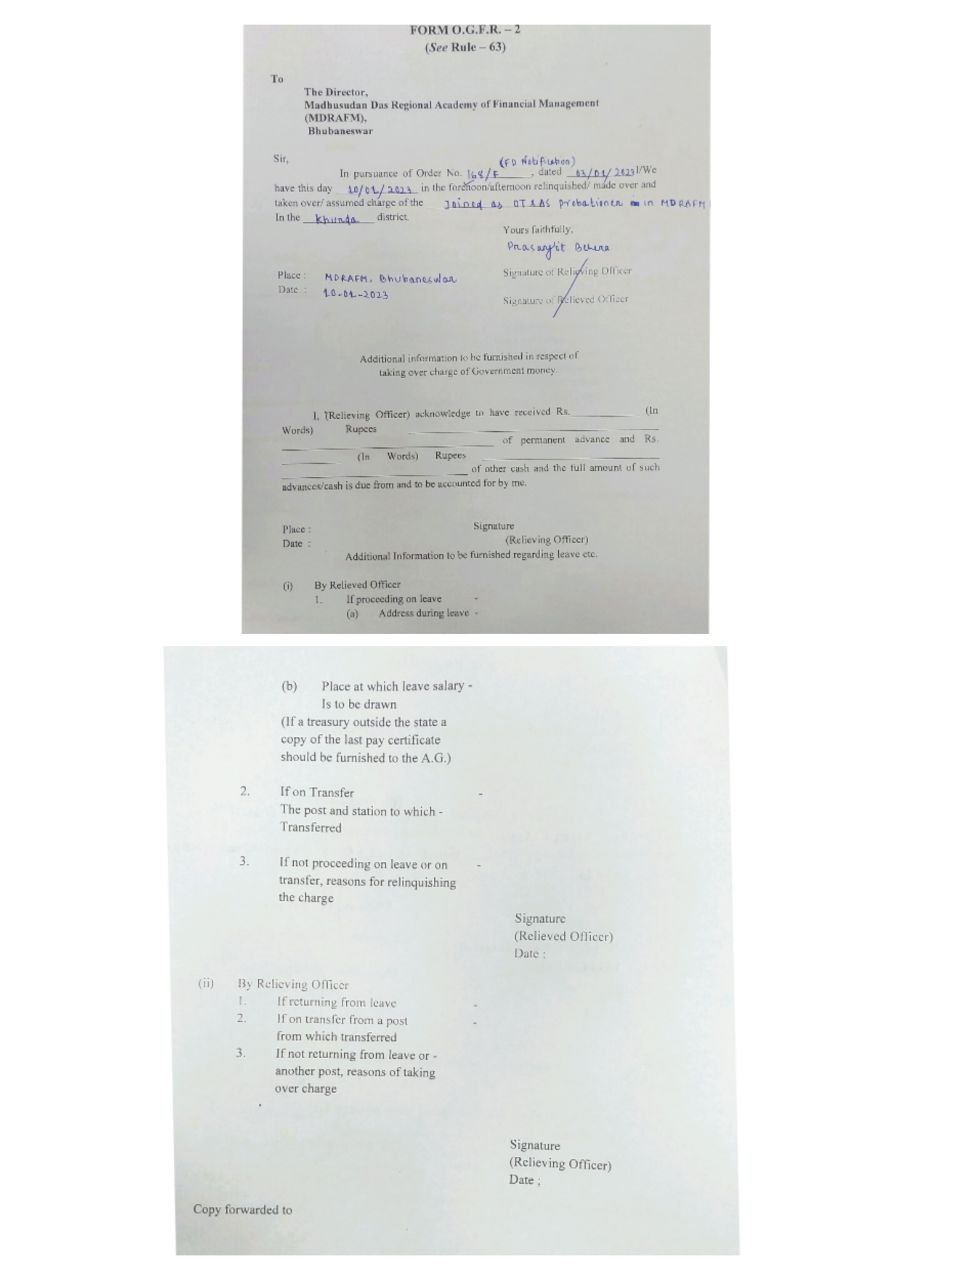 FORM O.G.F.R. – 2
(See Rule – 63)
To
The Director,
Madhusudan Das Regional Academy of Financial Management
(MDRAFM),
Bhubaneswar
Sir,
(FD Notification)
In pursuance of Order No. 168/F , dated 03/01/2023 I/We
have this day 10/01/2023 in the forenoon/afternoon relinquished/ made over and
taken over/ assumed charge of the Joined as OT&AS Probationer in MDRAFM
In the Khurda district.
Yours faithfully,
Prasanjit Behera
Signature of Relieving Officer
Place : MDRAFM, Bhubaneswar
Date : 10-01-2023
Signature of Relieved Officer
Additional information to be furnished in respect of
taking over charge of Government money.
I, (Relieving Officer) acknowledge to have received Rs. (In
Words) Rupees
of permanent advance and Rs.
(In Words) Rupees
of other cash and the full amount of such
advances/cash is due from and to be accounted for by me.
Place :
Signature
Date :
(Relieving Officer)
Additional Information to be furnished regarding leave etc.
(i) By Relieved Officer
1. If proceeding on leave -
(a) Address during leave -
(b) Place at which leave salary -
Is to be drawn
(If a treasury outside the state a
copy of the last pay certificate
should be furnished to the A.G.)
2. If on Transfer -
The post and station to which -
Transferred
3. If not proceeding on leave or on -
transfer, reasons for relinquishing
the charge
Signature
(Relieved Officer)
Date :
(ii) By Relieving Officer
1. If returning from leave -
2. If on transfer from a post -
from which transferred
3. If not returning from leave or -
another post, reasons of taking
over charge
Signature
(Relieving Officer)
Date ;
Copy forwarded to